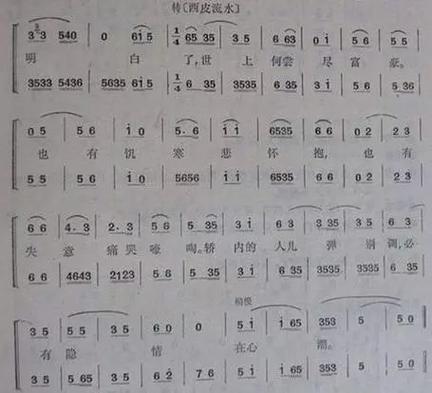 转〔西皮流水〕
3 3 540 | 0 6i 5 | 1/4 65 35 | 3 5 | 6 63 | 0 i | 5 6 | 5 5
明 白 了,世 上 何尝 尽 富 豪。
3533 5436 | 5635 6i 5 | 1/4 6 35 | 3535 | 6 35 | 3 i | 5 6 | 5 36
0 5 | 5 6 | i 0 | 5. 6 | i i | 6535 | 6 6 | 0 2 | 2 3
也 有 饥 寒 悲 怀 抱, 也 有
5 5 | 5 6 | i 0 | 5656 | i i | 6535 | 6 6 | 0 2 | 2 3
6 6 | 4. 3 | 2. 3 | 5 6 | 5 35 | 3 i | 6 3 | 3 35 | 3 5 | 6 3
失 意 痛 哭 嚎 啕。轿 内的 人儿 弹 别 调,必
6 6 | 4643 | 2123 | 5 6 | 5 35 | 3 i | 6 35 | 3535 | 3535 | 6 35
稍慢
3 5 | 5 5 | 3 5 | 6 0 | 0 | 5 i | i 65 | 353 | 5 | 5 0
有 隐 情 在心 潮。
3 5 | 5 65 | 3 5 | 6 2 | 7 6 | 5 i | i 65 | 353 | 5 | 5 0